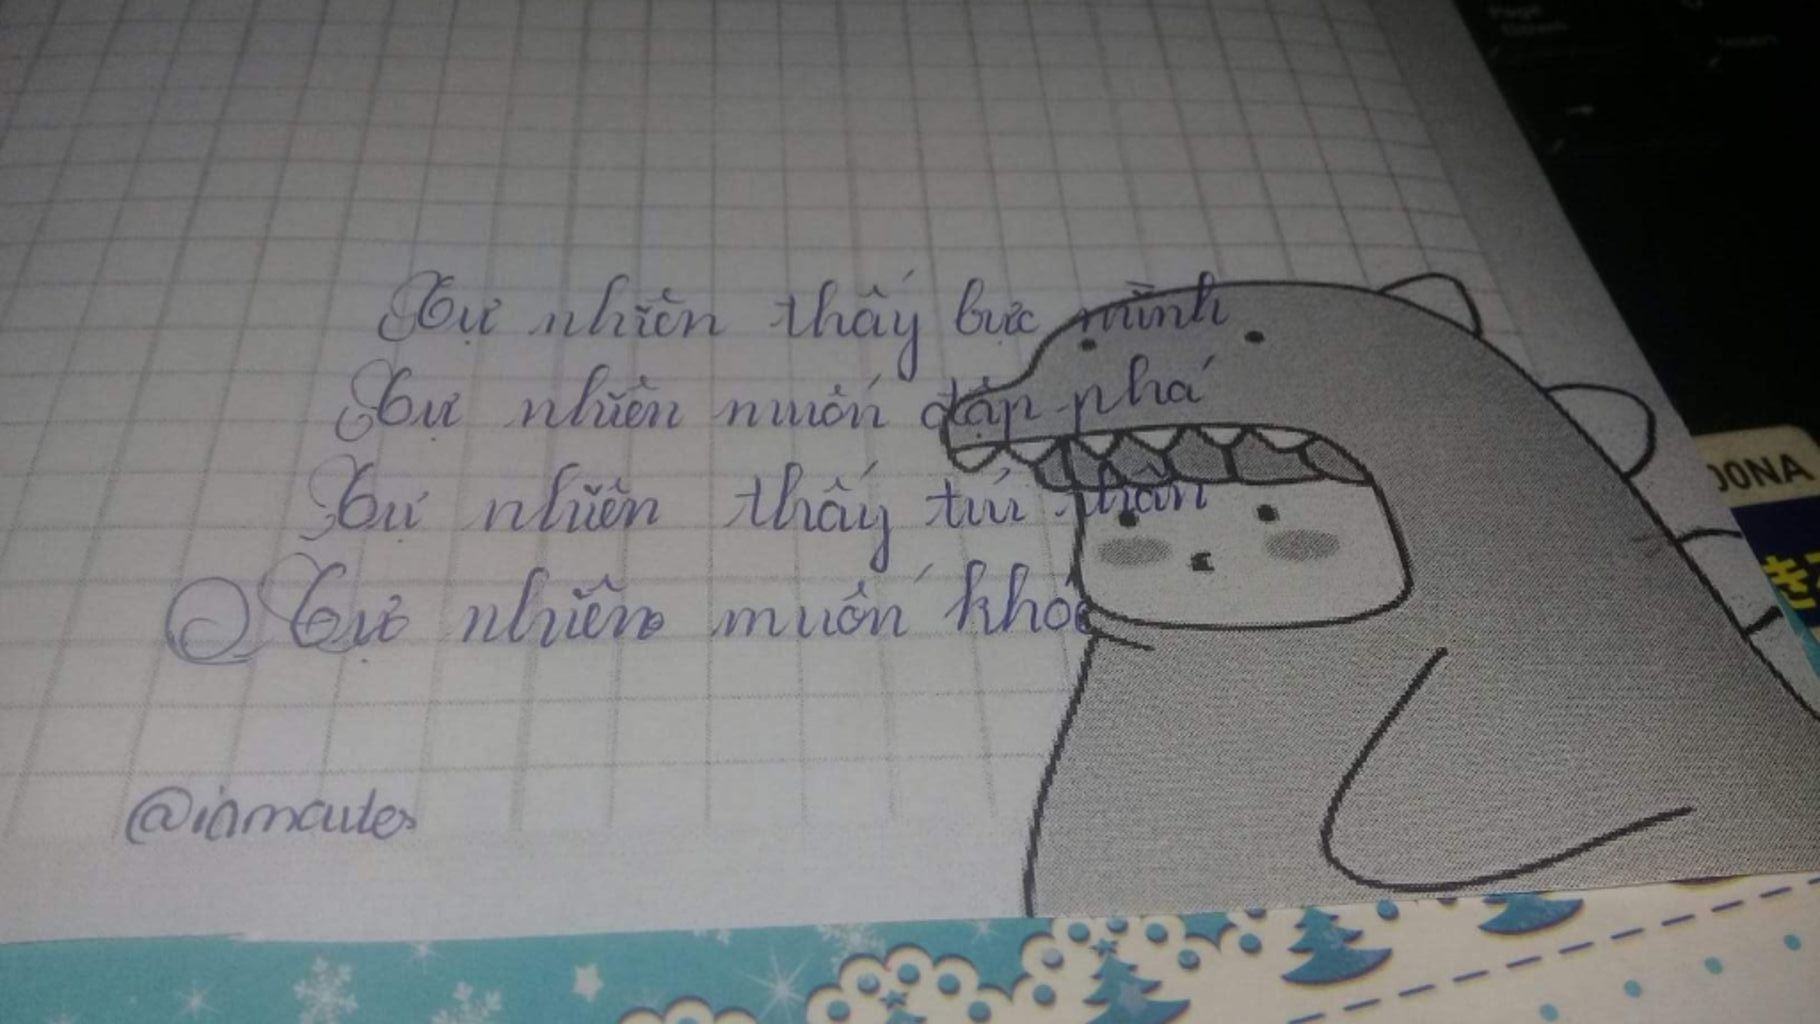 Tự nhiên thấy bực mình
Tự nhiên muốn đập phá
Tự nhiên thấy tủi thân
Tự nhiên muốn khóc
@inmcutes
OONA